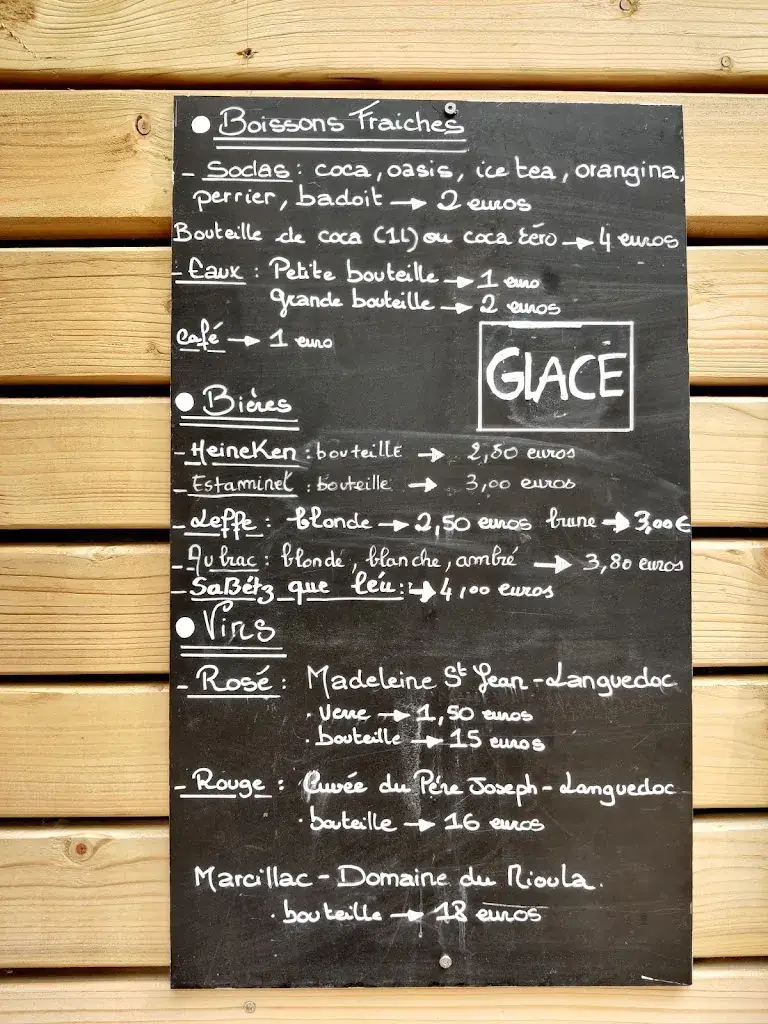 Boissons Fraiches
- Sodas : coca, oasis, ice tea, orangina,
perrier, badoit → 2 euros
Bouteille de coca (1L) ou coca zéro → 4 euros
- Eaux : Petite bouteille → 1 euro
Grande bouteille → 2 euros
café → 1 euro
GLACE
Bières
- HeineKen : bouteille → 2,50 euros
- Estaminet : bouteille → 3,00 euros
- Leffe : blonde → 2,50 euros brune → 3,00 €
- Aubrac : blonde, blanche, ambré → 3,80 euros
- SaBétz que léu : → 4,00 euros
Vins
- Rosé : Madeleine St Jean - Languedoc
· verre → 1,50 euros
· bouteille → 15 euros
- Rouge : Cuvée du Père Joseph - Languedoc
· bouteille → 16 euros
Marcillac - Domaine du Mioula.
· bouteille → 18 euros